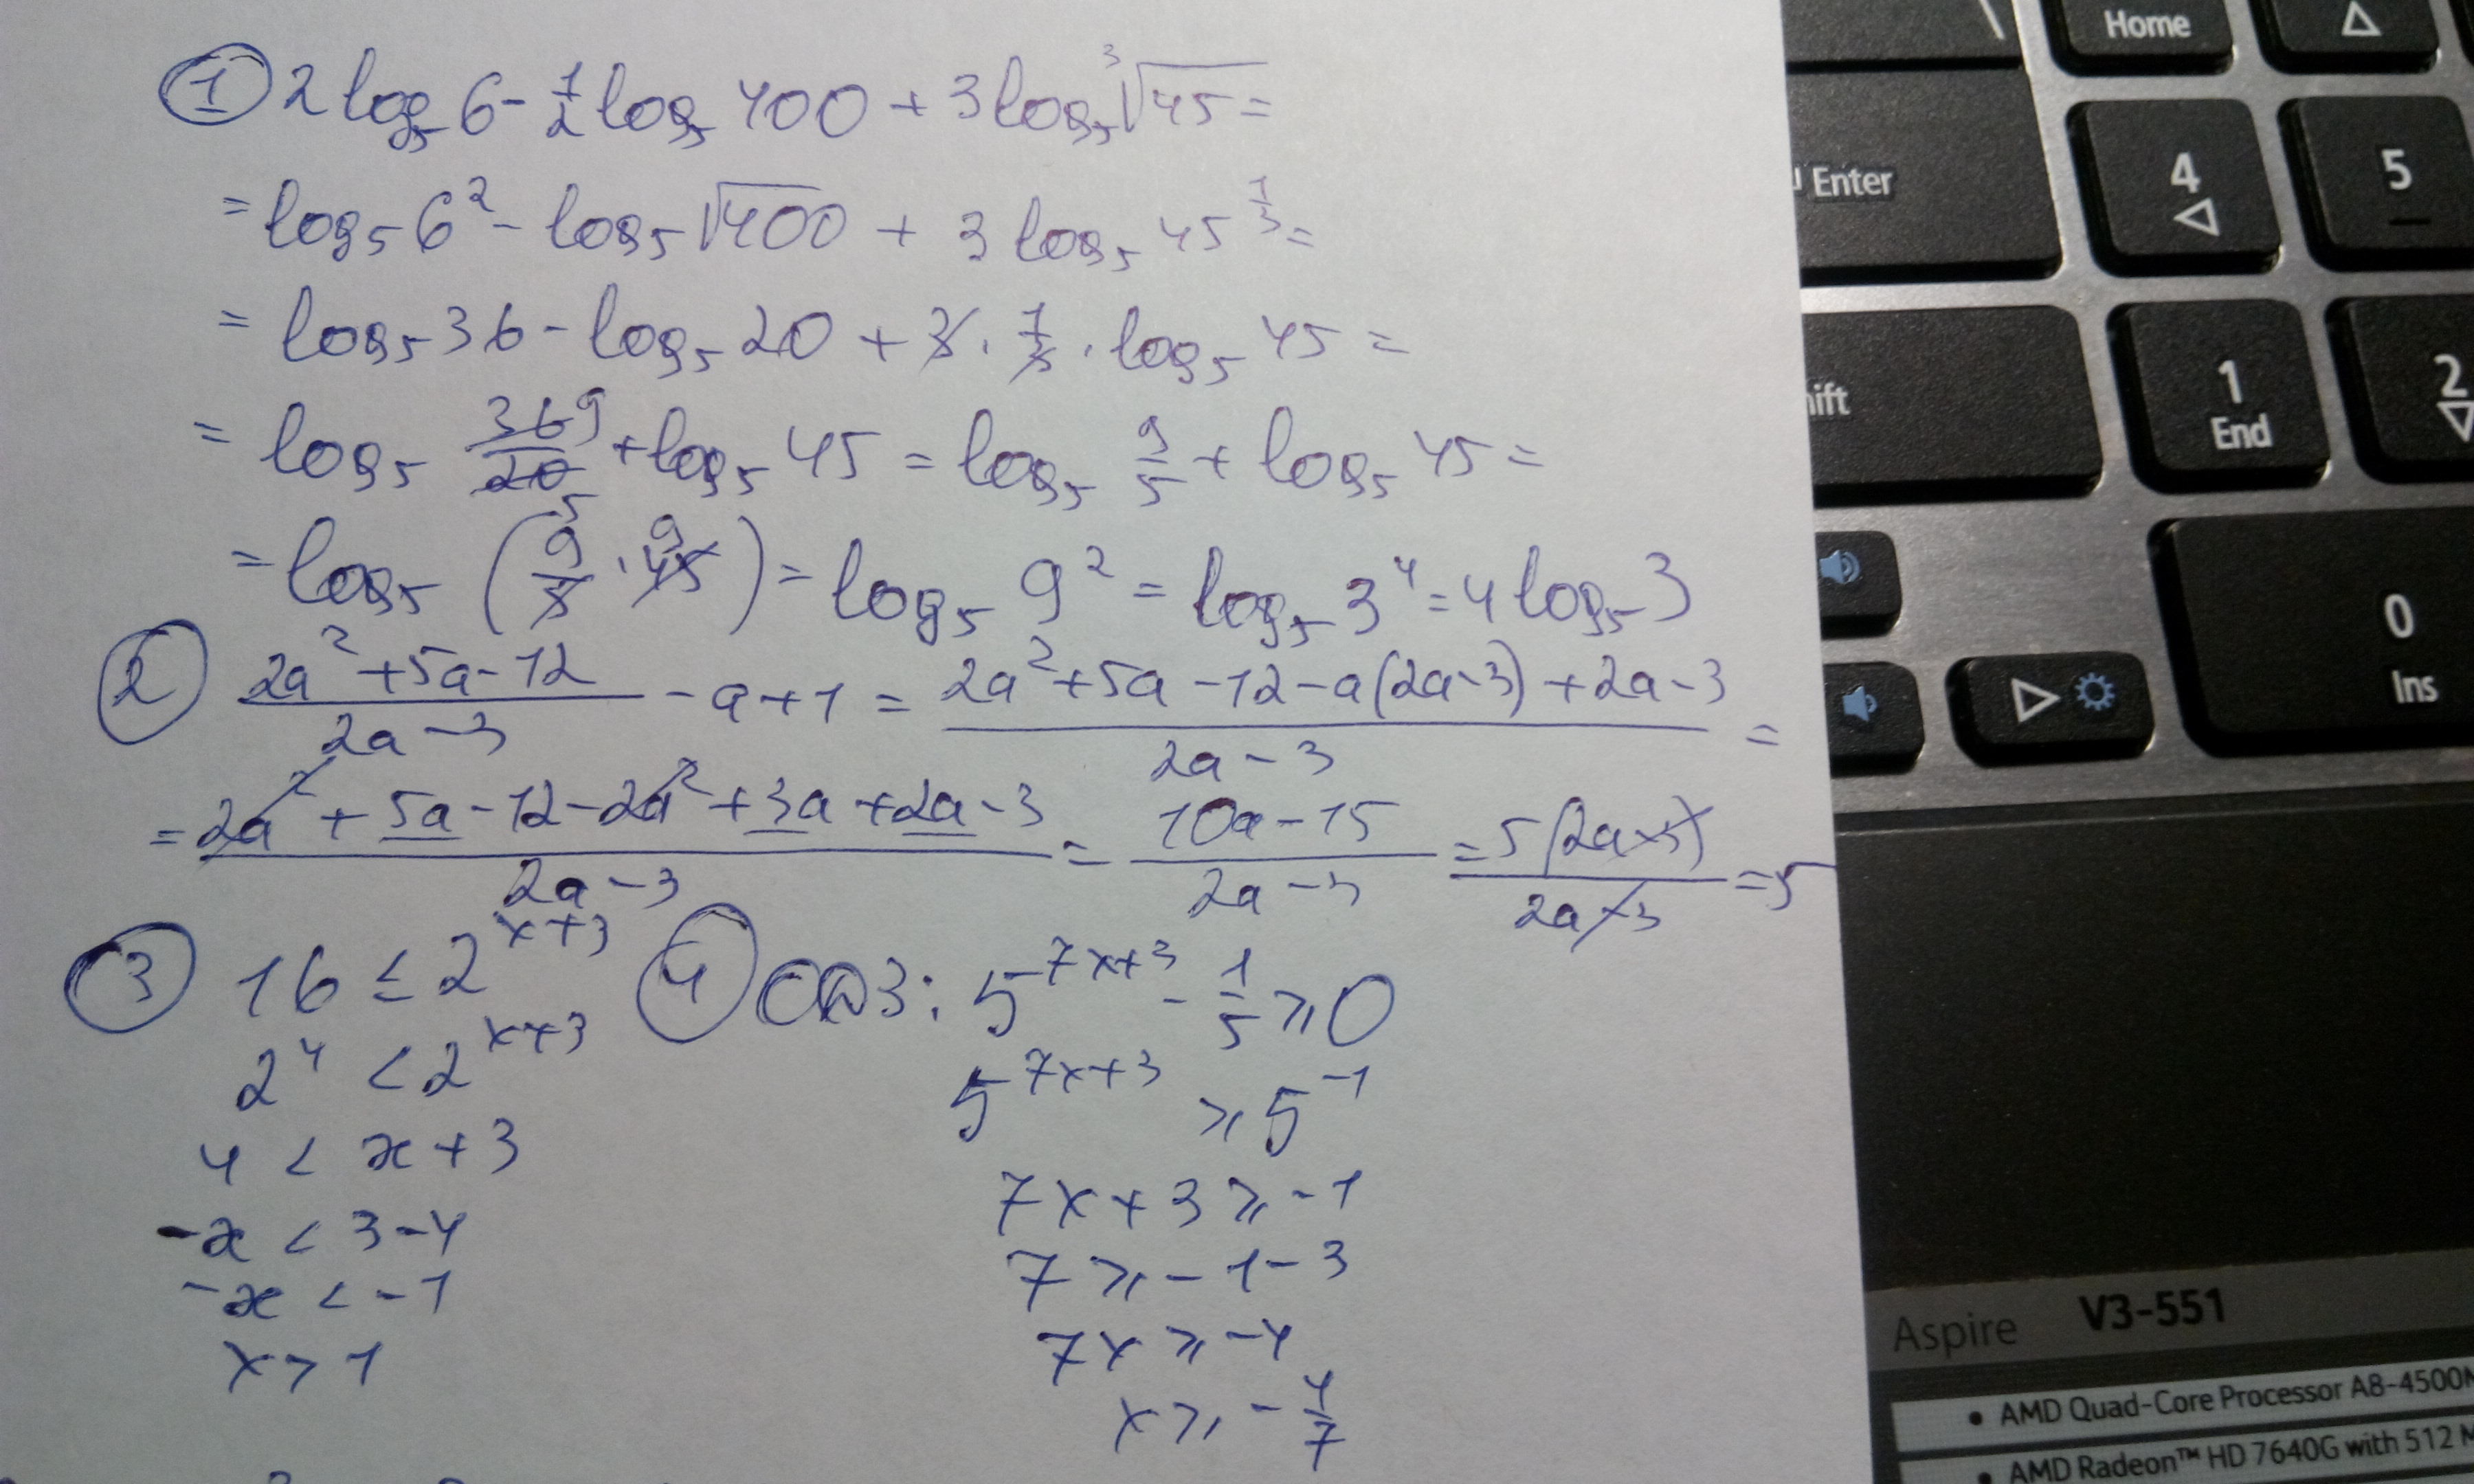 ① 2log₅6 - 1/2 log₅ 400 + 3log₅ ∛45 =
= log₅6² - log₅√400 + 3 log₅ 45^(1/3) =
= log₅36 - log₅20 + 3 · 1/3 · log₅ 45 =
= log₅ 36/20 9/5 + log₅ 45 = log₅ 9/5 + log₅ 45 =
= log₅ (9/5 · 45 9) = log₅ 9² = log₅ 3⁴ = 4log₅3
② (2a²+5a-12)/(2a-3) - a + 1 = (2a²+5a-12-a(2a-3)+2a-3)/(2a-3) =
= (2a²+5a-12-2a²+3a+2a-3)/(2a-3) = (10a-15)/(2a-3) = 5(2a-3)/(2a-3) = 5
③ 16 ≤ 2^(x+3)
2⁴ < 2^(x+3)
4 < x+3
-x < 3-4
-x < -1
x > 1
④ ОДЗ: 5^(7x+3) - 1/5 ≥ 0
5^(7x+3) ≥ 5^(-1)
7x+3 ≥ -1
7 ≥ -1-3
7x ≥ -4
x ≥ -4/7
Home
Enter
4
5
1
End
2
0
Ins
Aspire V3-551
• AMD Quad-Core Processor A8-4500M
• AMD Radeon™ HD 7640G with 512 M